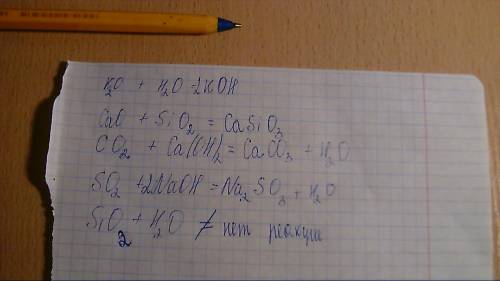 K₂O + H₂O = 2KOH
CaO + SiO₂ = CaSiO₃
CO₂ + Ca(OH)₂ = CaCO₃ + H₂O
SO₂ + 2NaOH = Na₂SO₃ + H₂O
SiO₂ + H₂O ≠ нет реакции